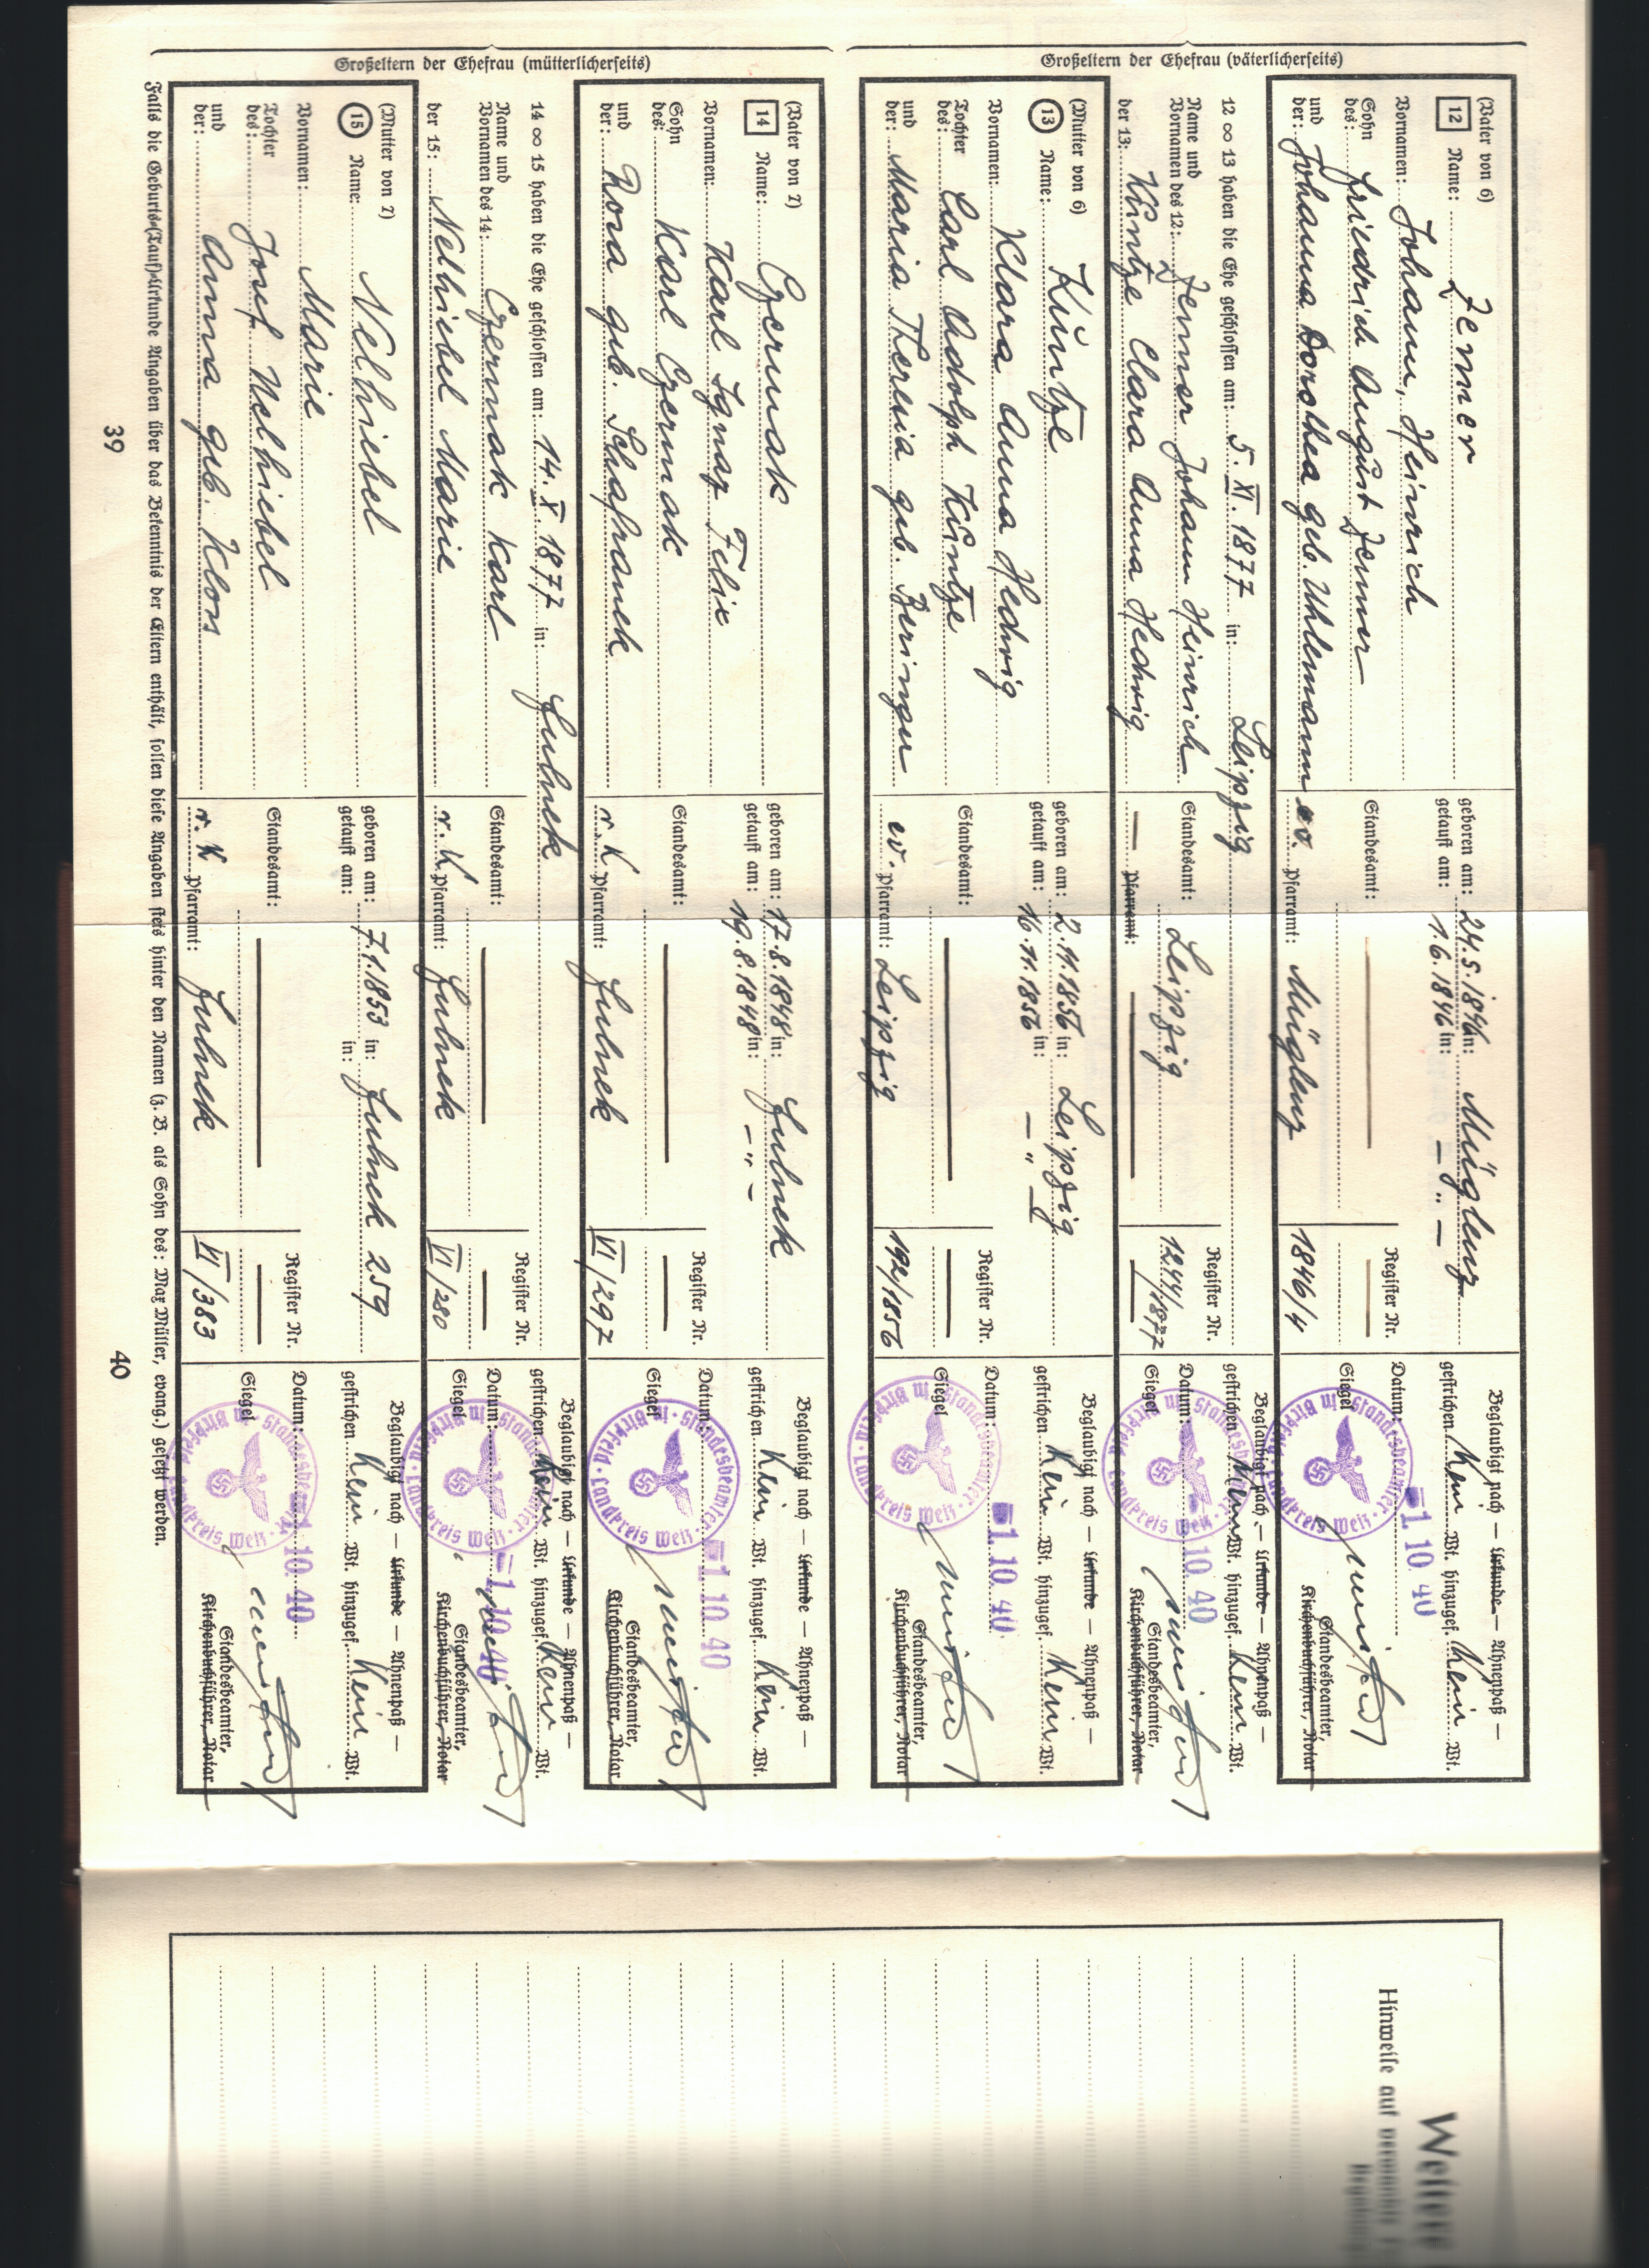 Großeltern der Ehefrau (väterlicherseits)
(Vater von 6)
12 Name: Zemmer
Vornamen: Johann, Heinrich
Sohn des: Friedrich August Zemmer
und der: Johanna Dorothea geb. Uhlemann ev.
geboren am: 24.5.1846 in: Müglenz
getauft am: 1.6.1846 in: — " —
Standesamt: —
Pfarramt: Müglenz
Register Nr.
—
1846/4
Beglaubigt nach — Urkunde — Ahnenpaß —
gestrichen Kein Wt. hinzugef. Kein Wt.
Datum: -1. 10. 40
Siegel
Der Standesbeamte in Birkfeld · Landkreis Weiz ·
Standesbeamter,
Kirchenbuchführer, Notar
12 ∞ 13 haben die Ehe geschlossen am: 5. XI. 1877 in: Leipzig
Name und Vornamen des 12: Zemmer Johann Heinrich
der 13: Küntze Clara Anna Hedwig
Standesamt: Leipzig
— Pfarramt: —
Register Nr.
1244/1877
—
Beglaubigt nach — Urkunde — Ahnenpaß —
gestrichen Kein Wt. hinzugef. Kein Wt.
Datum: -1. 10. 40
Siegel
Standesbeamter,
Kirchenbuchführer, Notar
(Mutter von 6)
13 Name: Küntze
Vornamen: Klara Anna Hedwig
Tochter des: Carl Adolph Küntze
und der: Maria Theresia geb. Beringer ev.
geboren am: 2.11.1856 in: Leipzig
getauft am: 16.11.1856 in: — " —
Standesamt: —
Pfarramt: Leipzig
Register Nr.
—
192/1856
Beglaubigt nach — Urkunde — Ahnenpaß —
gestrichen Kein Wt. hinzugef. Kein Wt.
Datum: -1. 10. 40
Siegel
Standesbeamter,
Kirchenbuchführer, Notar
Großeltern der Ehefrau (mütterlicherseits)
(Vater von 7)
14 Name: Czermak
Vornamen: Karl Ignaz Felix
Sohn des: Karl Czermak
und der: Rosa geb. Schafranek r. K
geboren am: 17.8.1848 in: Fulnek
getauft am: 19.8.1848 in: — " —
Standesamt: —
Pfarramt: Fulnek
Register Nr.
—
VI/297
Beglaubigt nach — Urkunde — Ahnenpaß —
gestrichen Kein Wt. hinzugef. Kein Wt.
Datum: -1. 10. 40
Siegel
Standesbeamter,
Kirchenbuchführer, Notar
14 ∞ 15 haben die Ehe geschlossen am: 14. X. 1877 in: Fulnek
Name und Vornamen des 14: Czermak Karl
der 15: Nelhiebel Marie
Standesamt: —
r. K Pfarramt: Fulnek
Register Nr.
—
VI/280
Beglaubigt nach — Urkunde — Ahnenpaß —
gestrichen Kein Wt. hinzugef. Kein Wt.
Datum: -1. 10. 40
Siegel
Standesbeamter,
Kirchenbuchführer, Notar
(Mutter von 7)
15 Name: Nelhiebel
Vornamen: Marie
Tochter des: Josef Nelhiebel
und der: Anna geb. Klos
geboren am: 7.1.1853 in: Fulnek 259
getauft am: in:
Standesamt: —
r. K Pfarramt: Fulnek
Register Nr.
—
VI/383
Beglaubigt nach — Urkunde — Ahnenpaß —
gestrichen Kein Wt. hinzugef. Kein Wt.
Datum: -1. 10. 40
Siegel
Standesbeamter,
Kirchenbuchführer, Notar
Falls die Geburts(Tauf)-Urkunde Angaben über das Bekenntnis der Eltern enthält, sollen diese Angaben stets hinter den Namen (z. B. als Sohn des: Max Müller, evang.) gesetzt werden.
39
40
Weitere
Hinweise auf